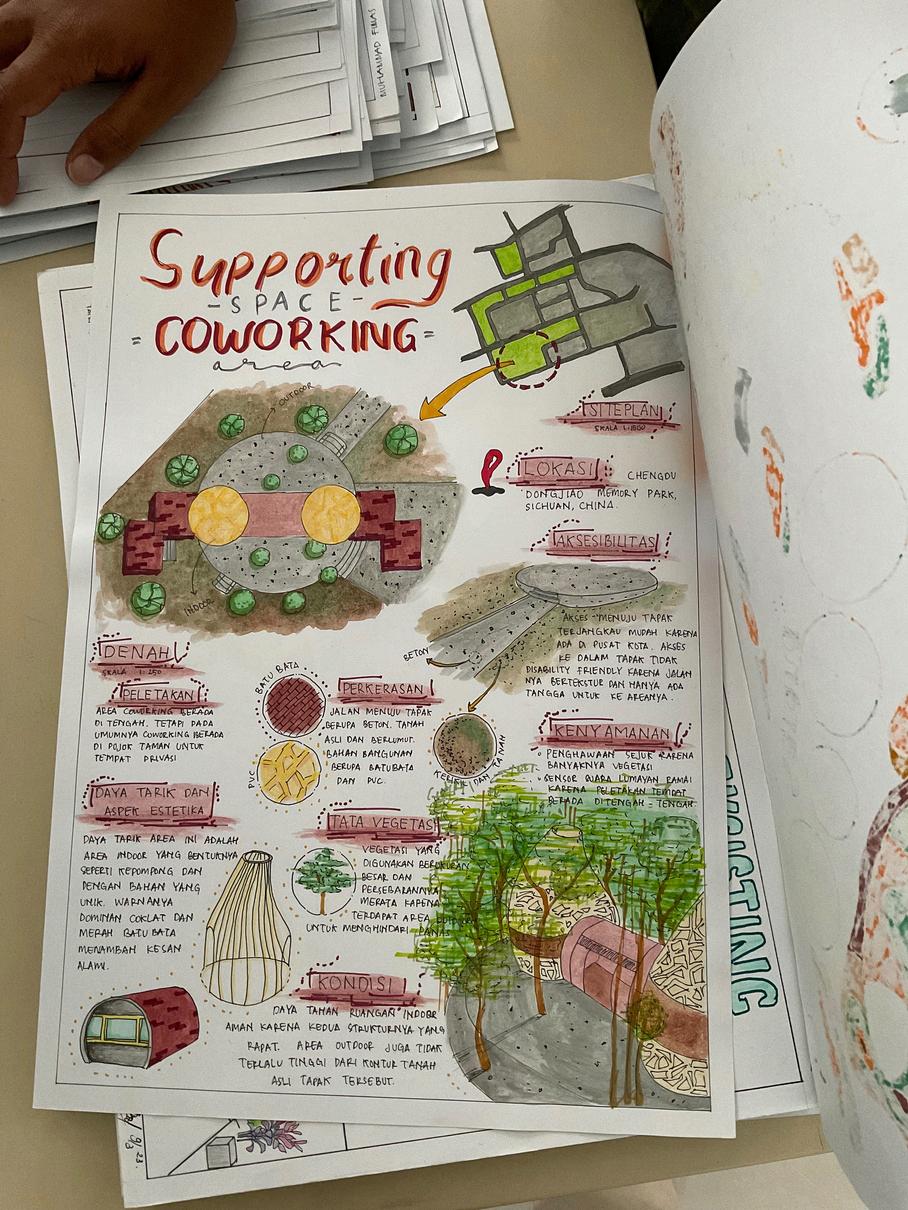 MUHAMMAD FIRAS
Supporting
- SPACE -
= COWORKING =
area
SITEPLAN
SKALA 1:1500
LOKASI
CHENGDU
DONGJIAO MEMORY PARK,
SICHUAN, CHINA.
AKSESIBILITAS
AKSES MENUJU TAPAK
TERJANGKAU MUDAH KARENA
ADA DI PUSAT KOTA. AKSES
KE DALAM TAPAK TIDAK
DISABILITY FRIENDLY KARENA JALAN
NYA BERTEKSTUR DAN HANYA ADA
TANGGA UNTUK KE AREANYA.
BETON
OUTDOOR
INDOOR
DENAH
SKALA 1:250
PELETAKAN
AREA COWORKING BERADA
DI TENGAH. TETAPI PADA
UMUMNYA COWORKING BERADA
DI POJOK TAMAN UNTUK
TEMPAT PRIVASI
BATU BATA
PVC
PERKERASAN
JALAN MENUJU TAPAK
BERUPA BETON. TANAH
ASLI DAN BERLUMUT.
BAHAN BANGUNAN
BERUPA BATUBATA
DAN PVC.
DAN TANAH
KENYAMANAN
• PENGHAWAAN SEJUK KARENA
BANYAKNYA VEGETASI
• SENSOR SUARA LUMAYAN RAMAI
KARENA PELETAKAN TEMPAT
BERADA DITENGAH - TENGAH
DAYA TARIK DAN
ASPEK ESTETIKA
DAYA TARIK AREA INI ADALAH
AREA INDOOR YANG BENTUKNYA
SEPERTI KEPOMPONG DAN
DENGAN BAHAN YANG
UNIK. WARNANYA
DOMINAN COKLAT DAN
MERAH BATU BATA
MENAMBAH KESAN
ALAMI.
TATA VEGETASI
VEGETASI YANG
DIGUNAKAN BERUKURAN
BESAR DAN
PERSEBARANNYA
MERATA KARENA
TERDAPAT AREA
UNTUK MENGHINDARI PANAS
KONDISI
DAYA TAHAN RUANGAN INDOOR
AMAN KARENA KEDUA STRUKTURNYA YANG
RAPAT. AREA OUTDOOR JUGA TIDAK
TERLALU TINGGI DARI KONTUR TANAH
ASLI TAPAK TERSEBUT.